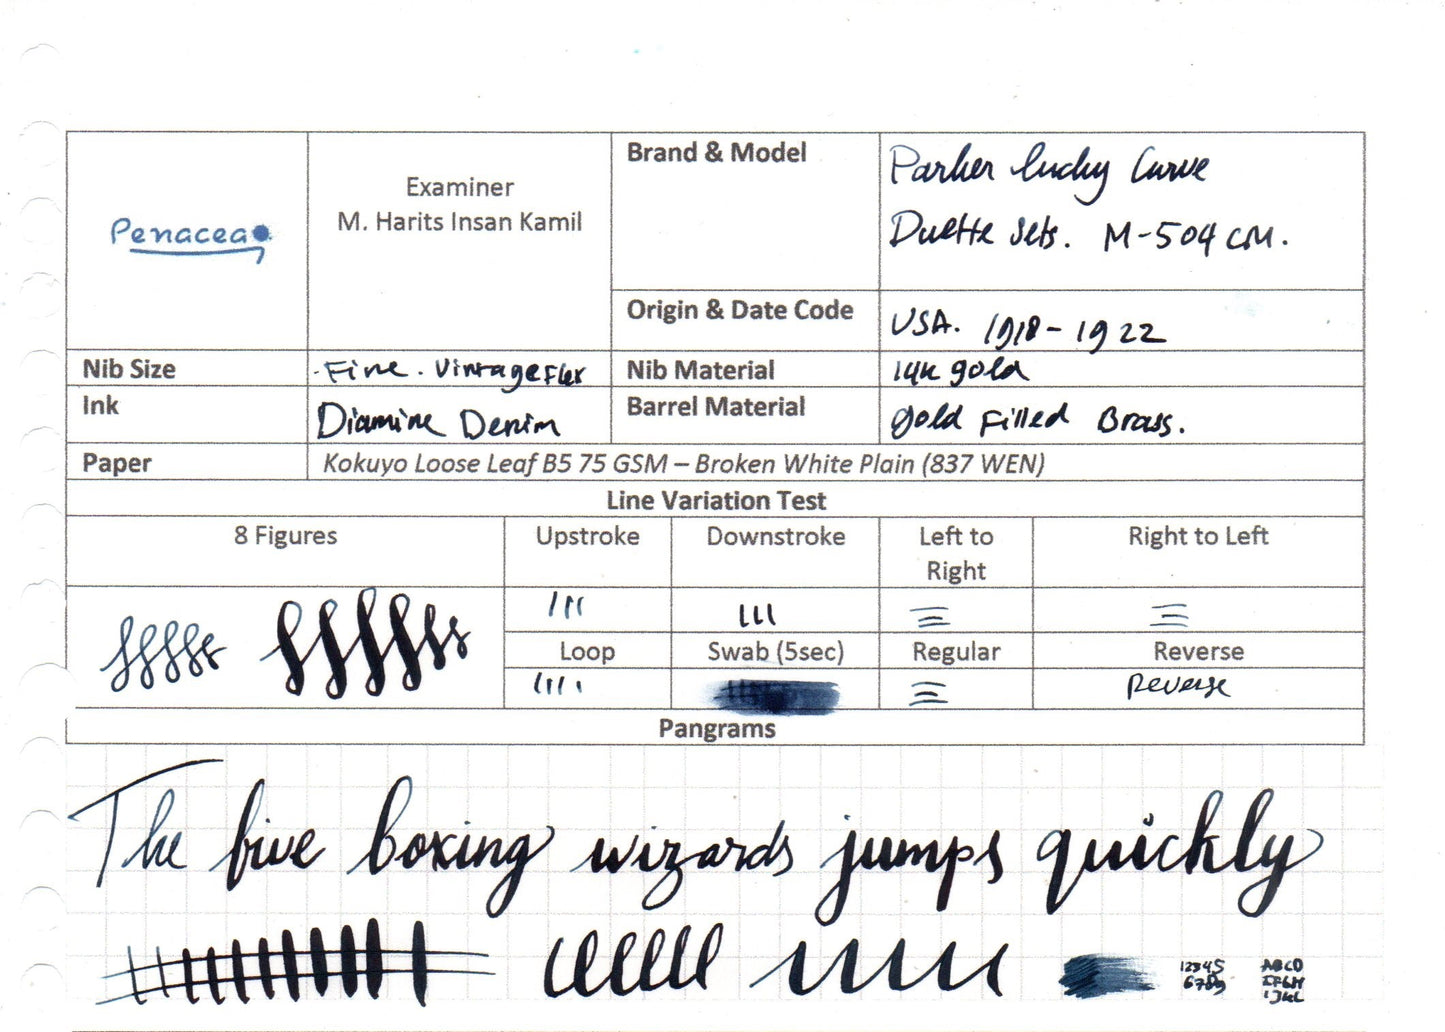 Penacea
Examiner
M. Harits Insan Kamil
Brand & Model
Parker lucky Curve
Duette Sets. M-504 CM.
Origin & Date Code
USA. 1918-1922
Nib Size
Fine. Vintage Flex
Nib Material
14k gold
Ink
Diamine Denim
Barrel Material
gold Filled Brass.
Paper
Kokuyo Loose Leaf B5 75 GSM – Broken White Plain (837 WEN)
Line Variation Test
8 Figures
Upstroke
Downstroke
Left to
Right
Right to Left
Loop
Swab (5sec)
Regular
Reverse
Reverse
Pangrams
The five boxing wizards jumps quickly
12345
6789
ABCD
EFGH
IJKL